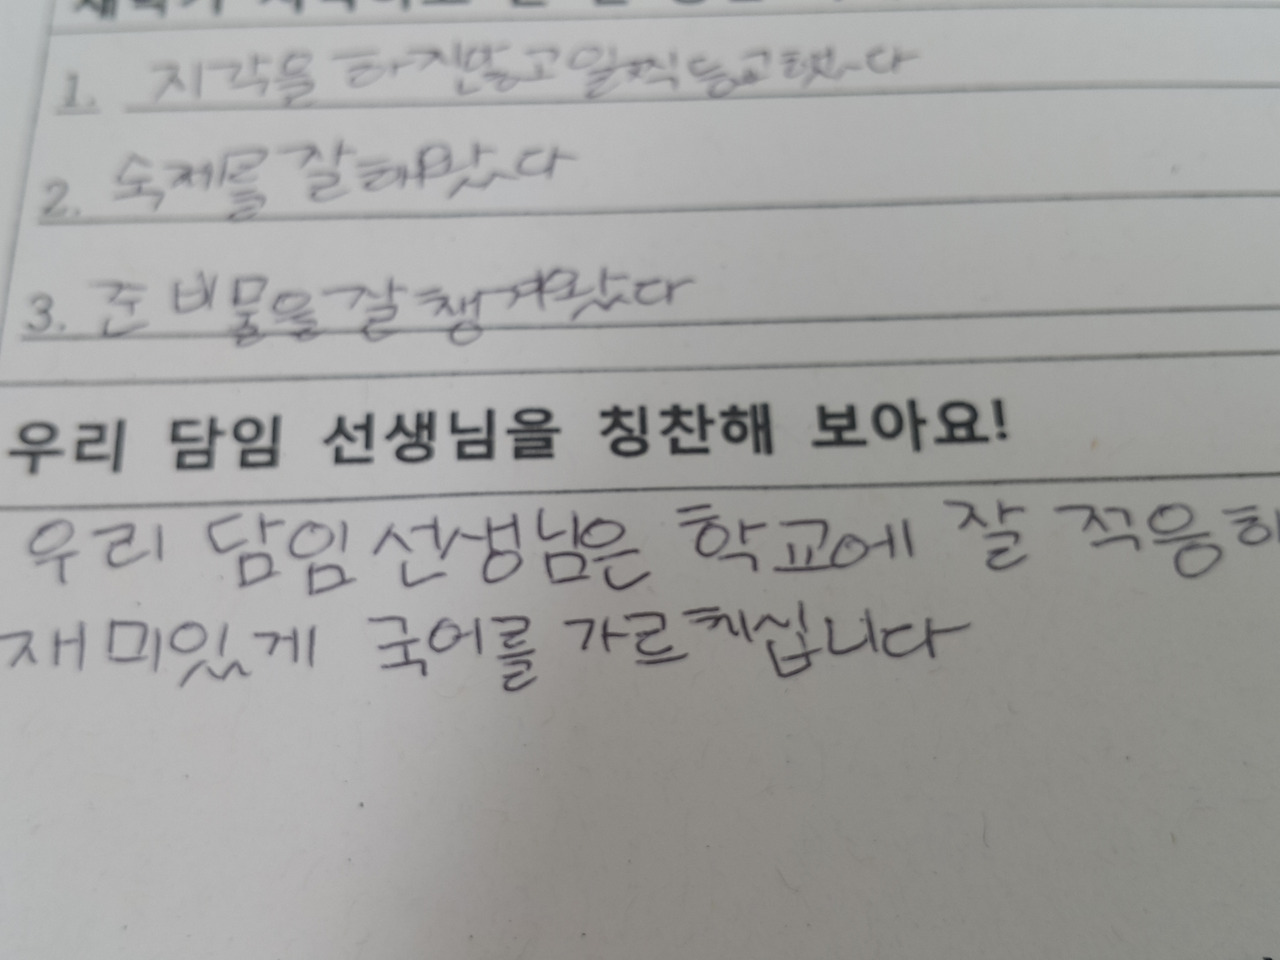 1. 지각을 하진않고 일찍 등교했다
2. 숙제를 잘해왔다
3. 준비물을 잘 챙겨왔다
우리 담임 선생님을 칭찬해 보아요!
우리 담임 선생님은 학교에 잘 적응하
재미있게 국어를 가르체십니다